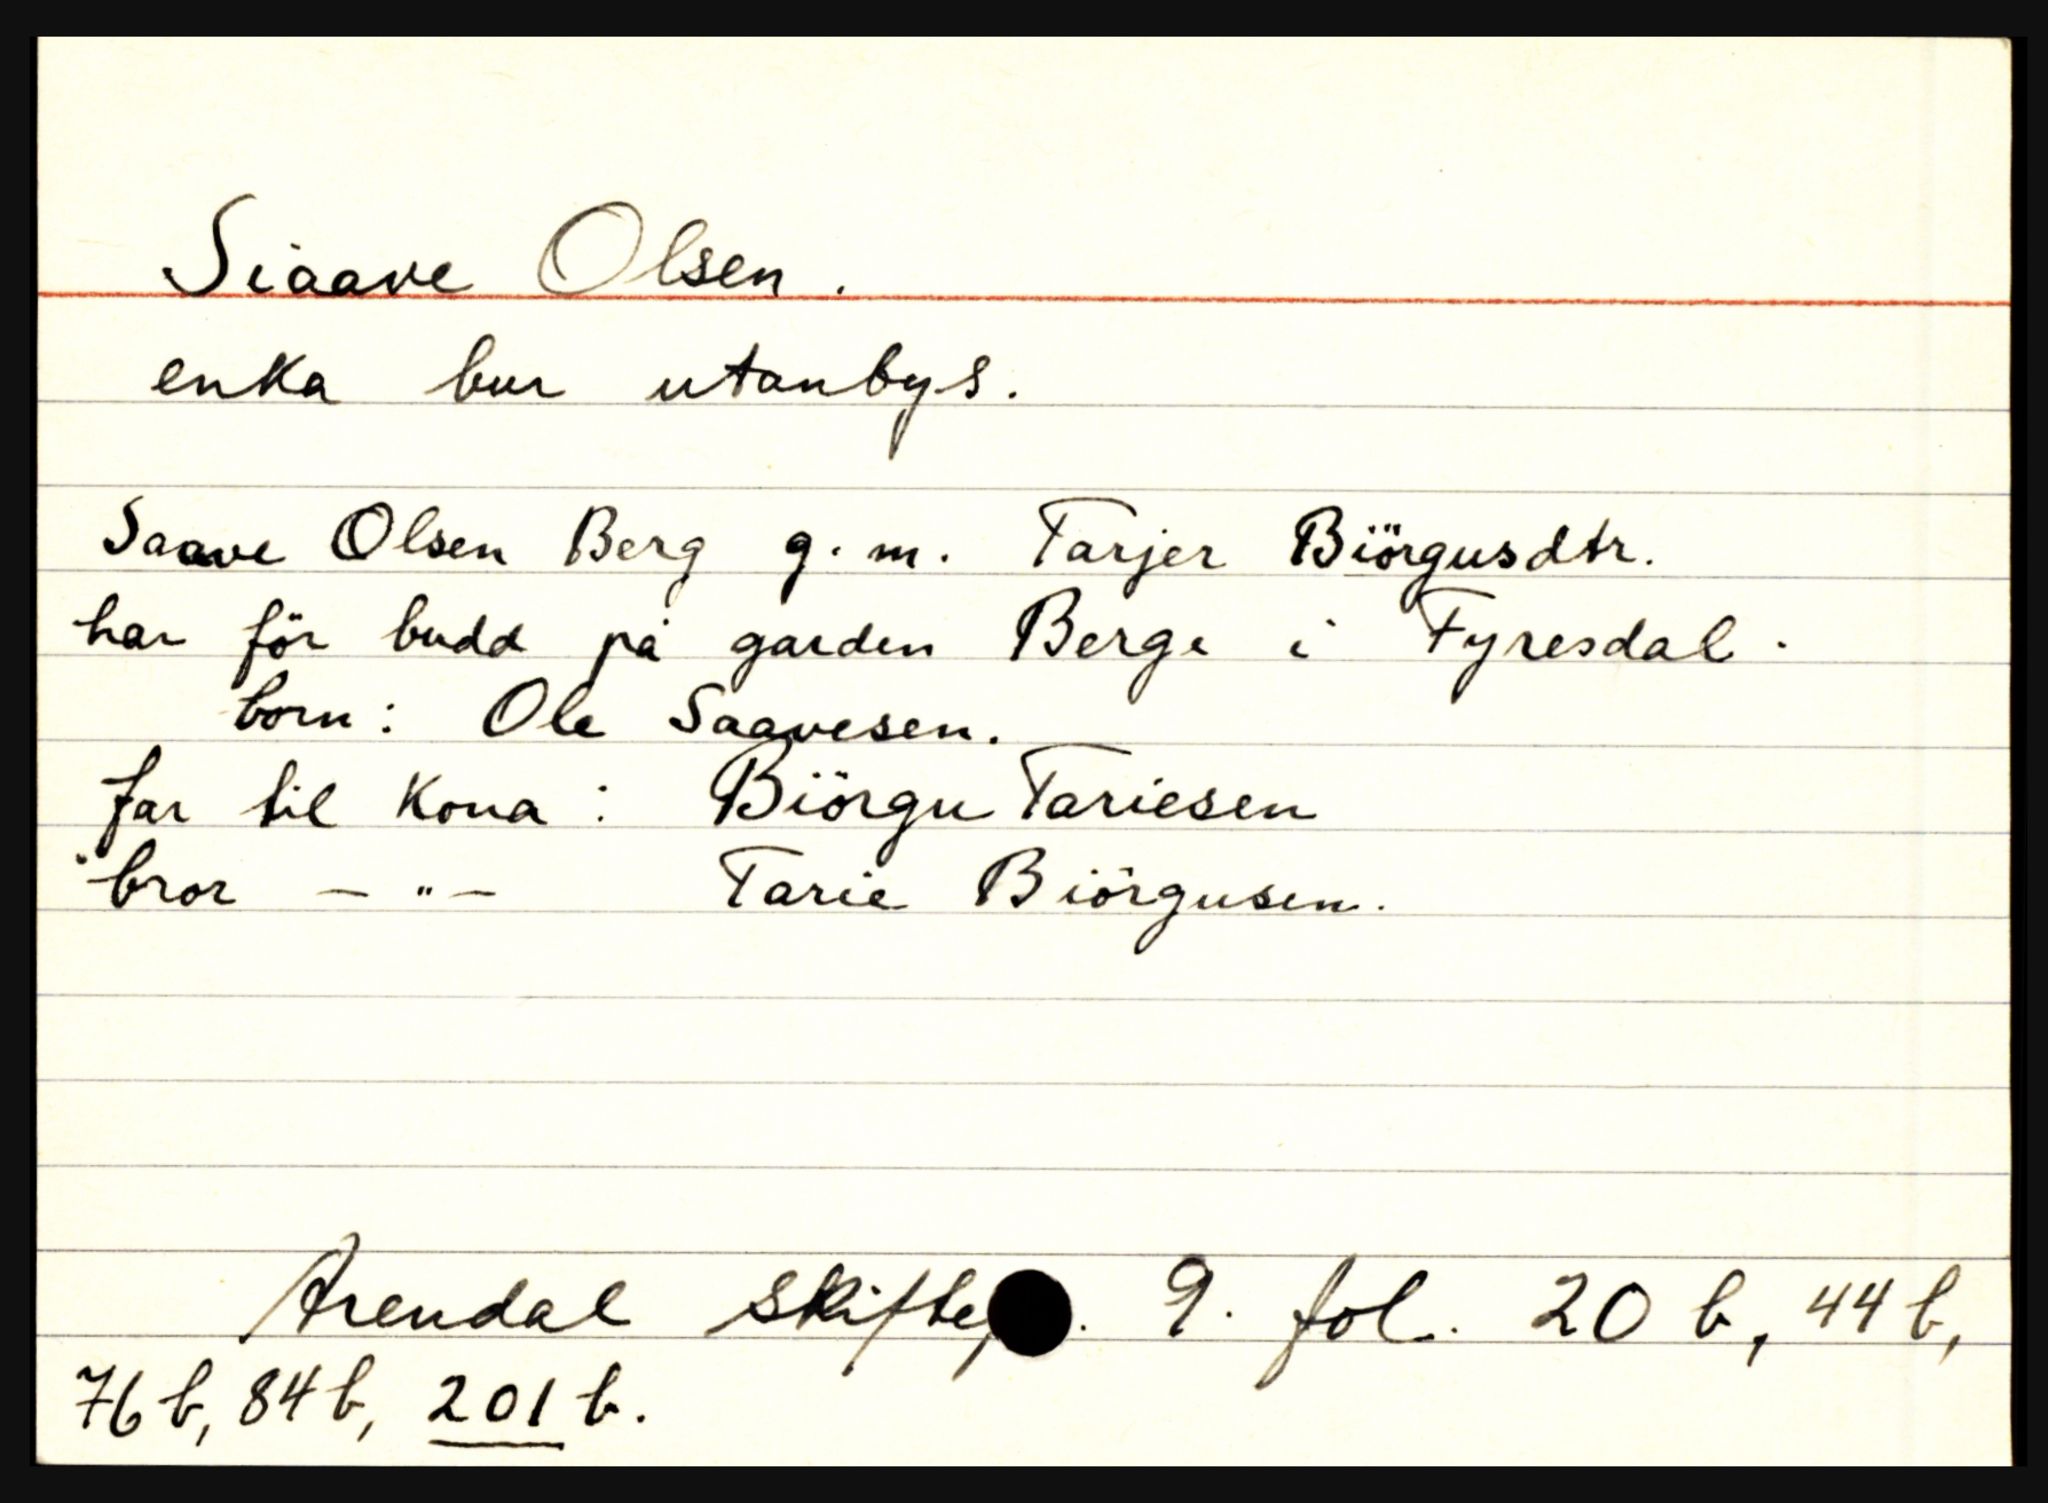 Siaave Olsen.
enka bur utanbys.
Saave Olsen Berg g.m. Tarjer Biörgusdtr.
har för budd på garden Berge i Fyresdal.
born: Ole Saavesen.
far til kona: Biörgu Tariesen
bror — " — Tarie Biörgusen.
Arendal 9. fol. 20 b, 44 b,
76 b, 84 b, 201 b.